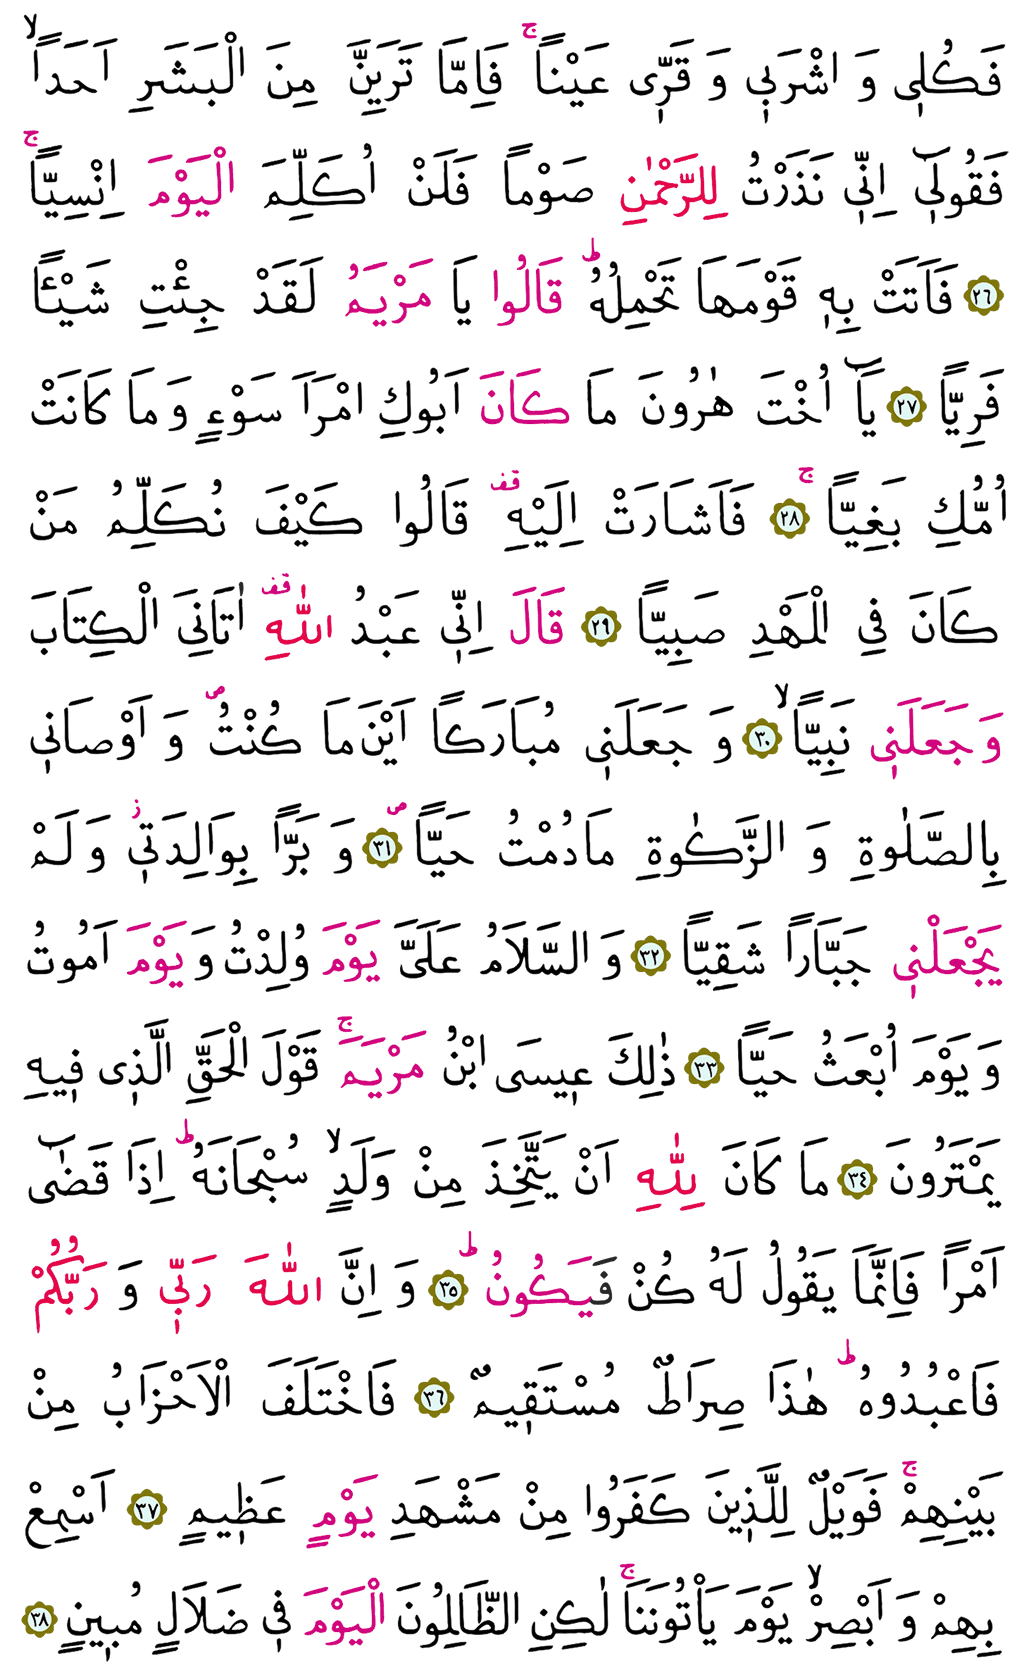 فَكُلٖي وَ اشْرَبٖي وَ قَرّٖى عَيْناًۚ فَاِمَّا تَرَيِنَّ مِنَ الْبَشَرِ اَحَداًۙ
فَقُولٖٓي اِنّٖي نَذَرْتُ لِلرَّحْمٰنِ صَوْماً فَلَنْ اُكَلِّمَ الْيَوْمَ اِنْسِياًّۚ
﴿٢٦﴾ فَاَتَتْ بِهٖ قَوْمَهَا تَحْمِلُهُؕ قَالُوا يَا مَرْيَمُ لَقَدْ جِئْتِ شَيْـٔاً
فَرِياًّ ﴿٢٧﴾ يَٓا اُخْتَ هٰرُونَ مَا كَانَ اَبُوكِ امْرَاَ سَوْءٍ وَ مَا كَانَتْ
اُمُّكِ بَغِياًّۚ ﴿٢٨﴾ فَاَشَارَتْ اِلَيْهِࣞ قَالُوا كَيْفَ نُكَلِّمُ مَنْ
كَانَ فِي الْمَهْدِ صَبِياًّ ﴿٢٩﴾ قَالَ اِنّٖي عَبْدُ اللّٰهِࣞ اٰتَانِيَ الْكِتَابَ
وَ جَعَلَنٖي نَبِياًّۙ ﴿٣٠﴾ وَ جَعَلَنٖي مُبَارَكاً اَيْنَ مَا كُنْتُࣕ وَ اَوْصَانٖي
بِالصَّلٰوةِ وَ الزَّكٰوةِ مَا دُمْتُ حَياًّࣕ ﴿٣١﴾ وَ بَراًّ بِوَالِدَتٖيؗ وَ لَمْ
يَجْعَلْنٖي جَبَّاراً شَقِياًّ ﴿٣٢﴾ وَ السَّلَامُ عَلَيَّ يَوْمَ وُلِدْتُ وَ يَوْمَ اَمُوتُ
وَ يَوْمَ اُبْعَثُ حَياًّ ﴿٣٣﴾ ذٰلِكَ عٖيسَى ابْنُ مَرْيَمَۚ قَوْلَ الْحَقِّ الَّذٖى فٖيهِ
يَمْتَرُونَ ﴿٣٤﴾ مَا كَانَ لِلّٰهِ اَنْ يَتَّخِذَ مِنْ وَلَدٍۙ سُبْحَانَهُؕ اِذَا قَضٰٓى
اَمْراً فَاِنَّمَا يَقُولُ لَهُ كُنْ فَيَكُونُؕ ﴿٣٥﴾ وَ اِنَّ اللّٰهَ رَبّٖي وَ رَبُّكُمْ
فَاعْبُدُوهُؕ هٰذَا صِرَاطٌ مُسْتَقٖيمٌ ﴿٣٦﴾ فَاخْتَلَفَ الْاَحْزَابُ مِنْ
بَيْنِهِمْۚ فَوَيْلٌ لِلَّذٖينَ كَفَرُوا مِنْ مَشْهَدِ يَوْمٍ عَظٖيمٍ ﴿٣٧﴾ اَسْمِعْ
بِهِمْ وَ اَبْصِرْۙ يَوْمَ يَأْتُونَنَاۚ لٰكِنِ الظَّالِمُونَ الْيَوْمَ فٖي ضَلَالٍ مُبٖينٍ ﴿٣٨﴾